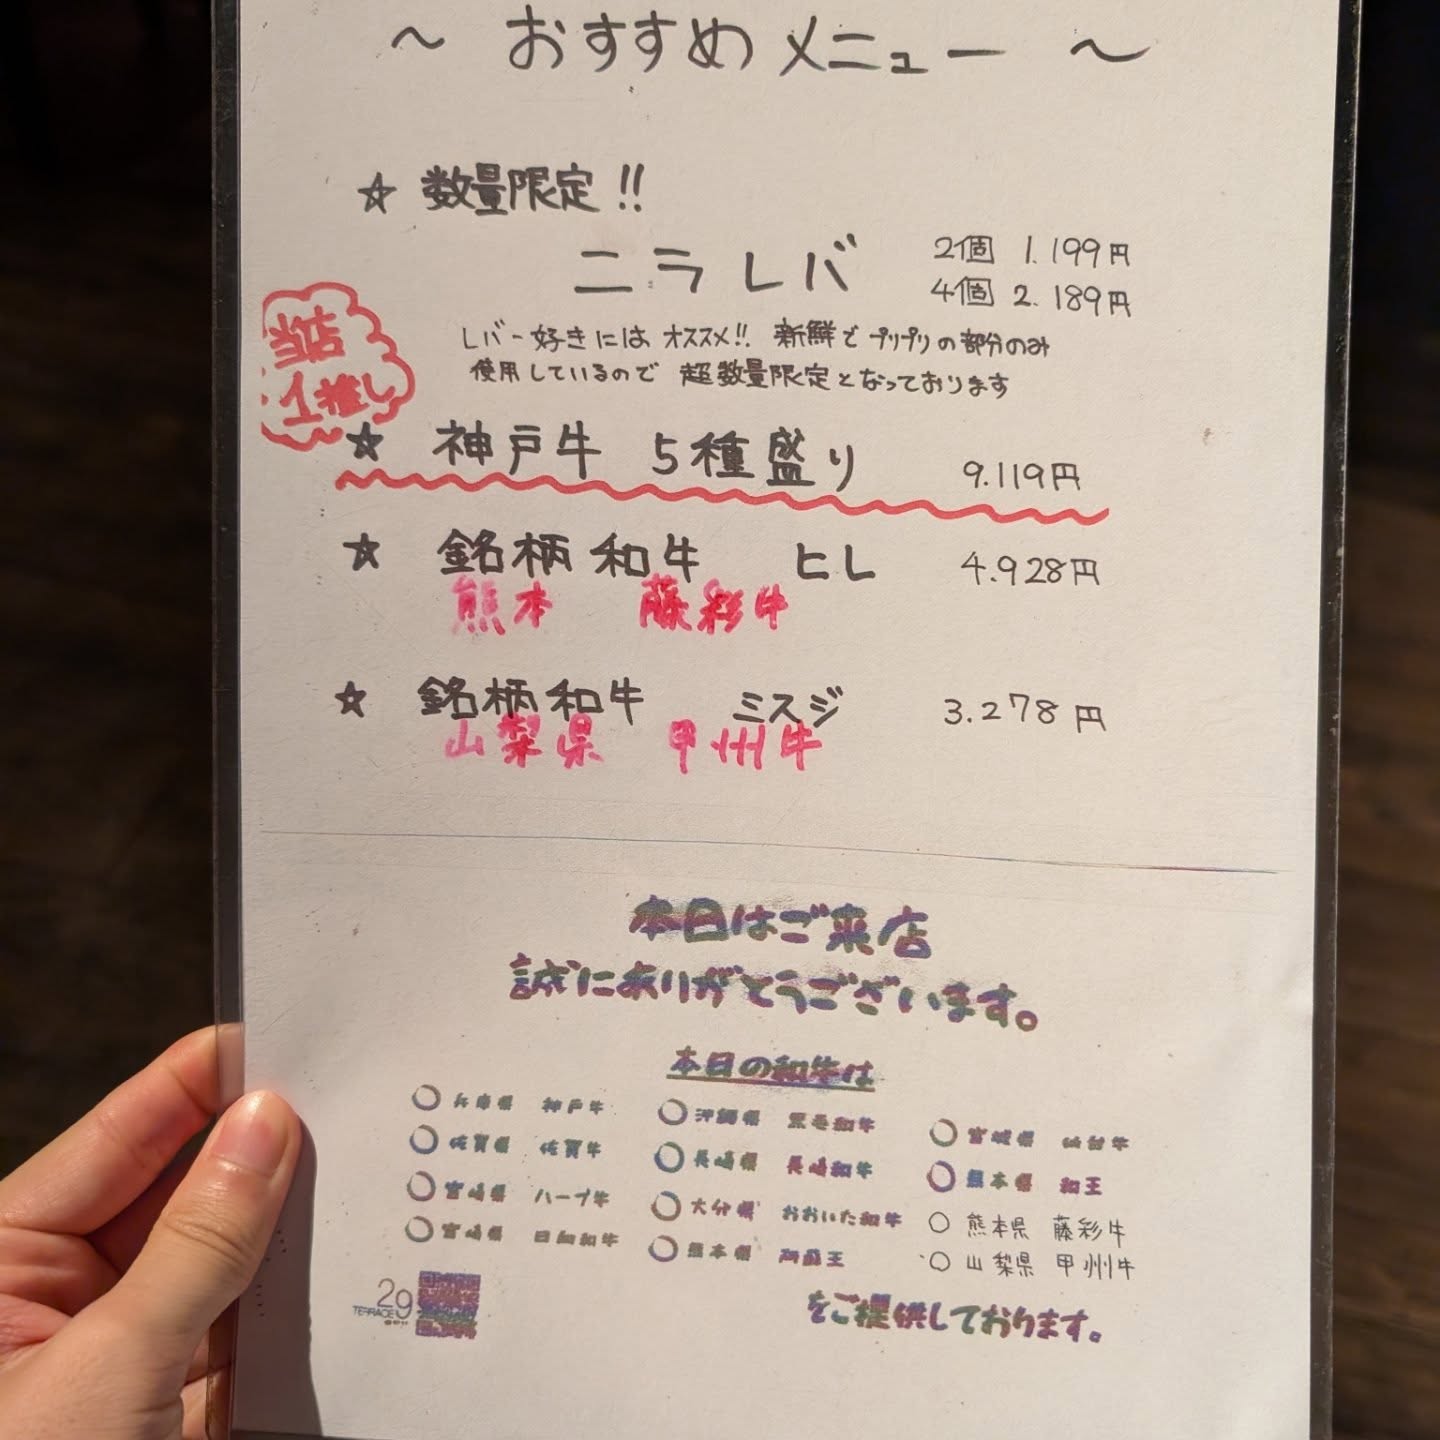 ～ おすすめメニュー ～
☆ 数量限定!!
ニラレバ
2個 1.199円
4個 2.189円
レバー好きには オススメ!! 新鮮でプリプリの部分のみ
使用しているので 超数量限定となっております
当店
1推し
☆ 神戸牛 5種盛り 9.119円
☆ 銘柄和牛 ヒレ 4.928円
熊本 藤彩牛
☆ 銘柄和牛 ミスジ 3.278円
山梨県 甲州牛
本日はご来店
誠にありがとうございます。
本日の和牛は
○ 兵庫県 神戸牛
○ 佐賀県 佐賀牛
○ 宮崎県 ハーブ牛
○ 宮崎県
○ 沖縄県 黒毛和牛
○ 長崎県 長崎和牛
○ 大分県 おおいた和牛
○ 熊本県 阿蘇王
○ 宮城県 仙台牛
○ 熊本県 和王
○ 熊本県 藤彩牛
○ 山梨県 甲州牛
をご提供しております。
29
TERRACE